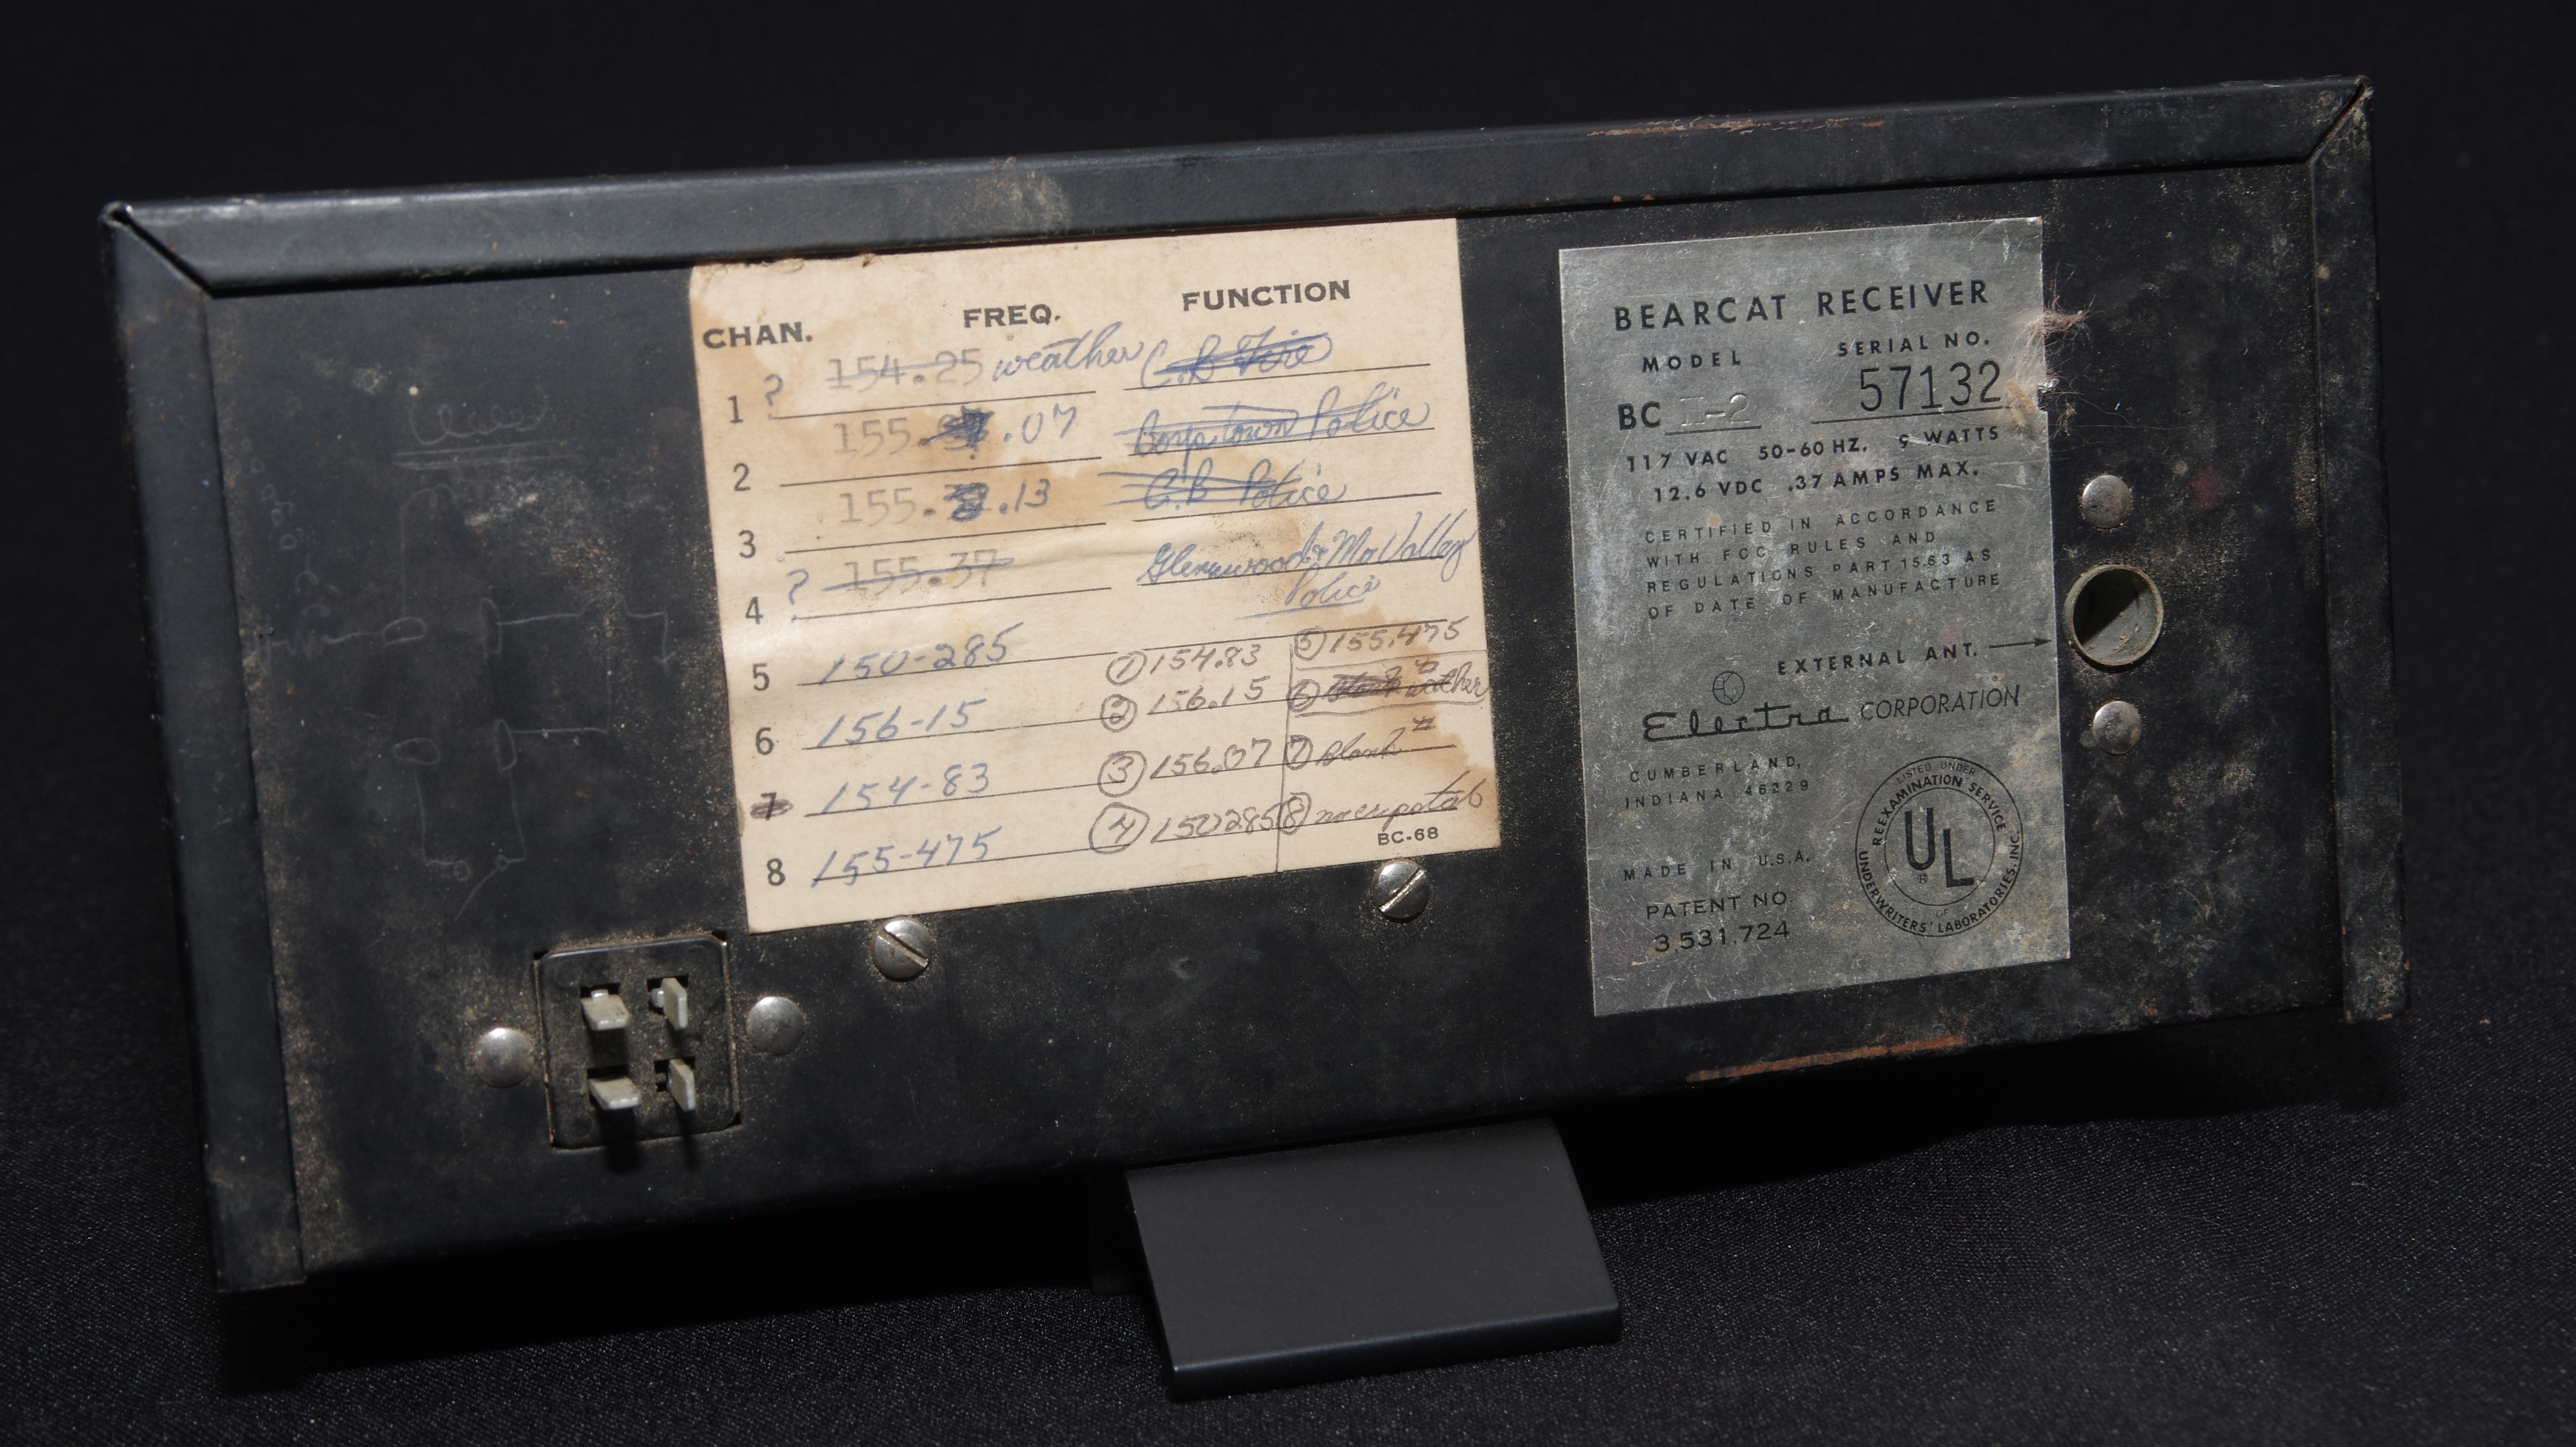 CHAN. FREQ. FUNCTION
1 ? 154.25 weather C.B Fire
2 155. .07 Boys town Police
3 155. .13 C.B Police
4 ? 155.37 Glennwood & Mo Valley
Police
5 150-285
6 156-15
7 154-83
8 155-475
① 154.83
② 156.15
③ 156.07
④ 150285
⑤ 155.475
⑥ weather #
⑦ blank #
⑧
BC-68
BEARCAT RECEIVER
MODEL SERIAL NO.
BC II-2 57132
117 VAC 50-60 HZ. 9 WATTS
12.6 VDC .37 AMPS MAX.
CERTIFIED IN ACCORDANCE
WITH FCC RULES AND
REGULATIONS PART 15.63 AS
OF DATE OF MANUFACTURE
EXTERNAL ANT.
Electra CORPORATION
CUMBERLAND,
INDIANA 46229
MADE IN U.S.A.
PATENT NO
3,531,724
LISTED UNDER
REEXAMINATION SERVICE
UL
®
OF
UNDERWRITERS' LABORATORIES, INC.